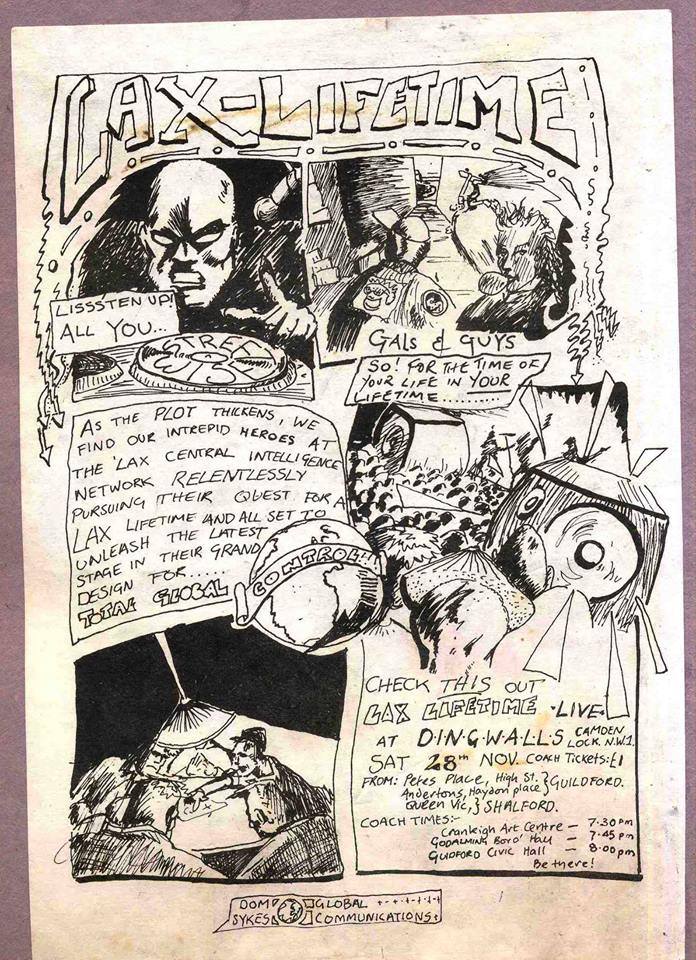 LAX-LIFETIME
LISSSTEN UP!
ALL YOU...
GALS & GUYS
SO! FOR THE TIME OF
YOUR LIFE IN YOUR
LIFETIME..........
AS THE PLOT THICKENS, WE
FIND OUR INTREPID HEROES AT
THE 'LAX CENTRAL INTELLIGENCE
NETWORK RELENTLESSLY
PURSUING THEIR QUEST FOR A
LAX LIFETIME AND ALL SET TO
UNLEASH THE LATEST
STAGE IN THEIR GRAND
DESIGN FOR......
TOTAL GLOBAL
CONTROL!
CHECK THIS OUT
LAX LIFETIME ·LIVE·
AT D·I·N·G·W·A·L·L·S CAMDEN
LOCK. N.W.1.
SAT 28TH NOV. COACH TICKETS: £1
FROM: Petes Place, High St. } GUILDFORD.
Andertons, Haydon place
Queen Vic, } SHALFORD.
COACH TIMES:-
Cranleigh Art Centre — 7·30 pm
GODALMING BORO' HALL — 7·45 pm
GUIDFORD CIVIC HALL — 8·00 pm
Be there!
DOM GLOBAL
SYKES COMMUNICATIONS